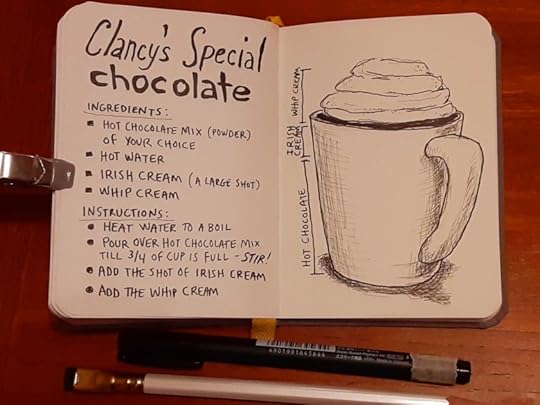 Clancy's Special
chocolate
INGREDIENTS:
HOT CHOCOLATE MIX (POWDER)
OF YOUR CHOICE
HOT WATER
IRISH CREAM (A LARGE SHOT)
WHIP CREAM
INSTRUCTIONS:
HEAT WATER TO A BOIL
POUR OVER HOT CHOCOLATE MIX
TILL 3/4 OF CUP IS FULL - STIR!
ADD THE SHOT OF IRISH CREAM
ADD THE WHIP CREAM
WHIP CREAM
IRISH
CREAM
HOT CHOCOLATE
4901991645844